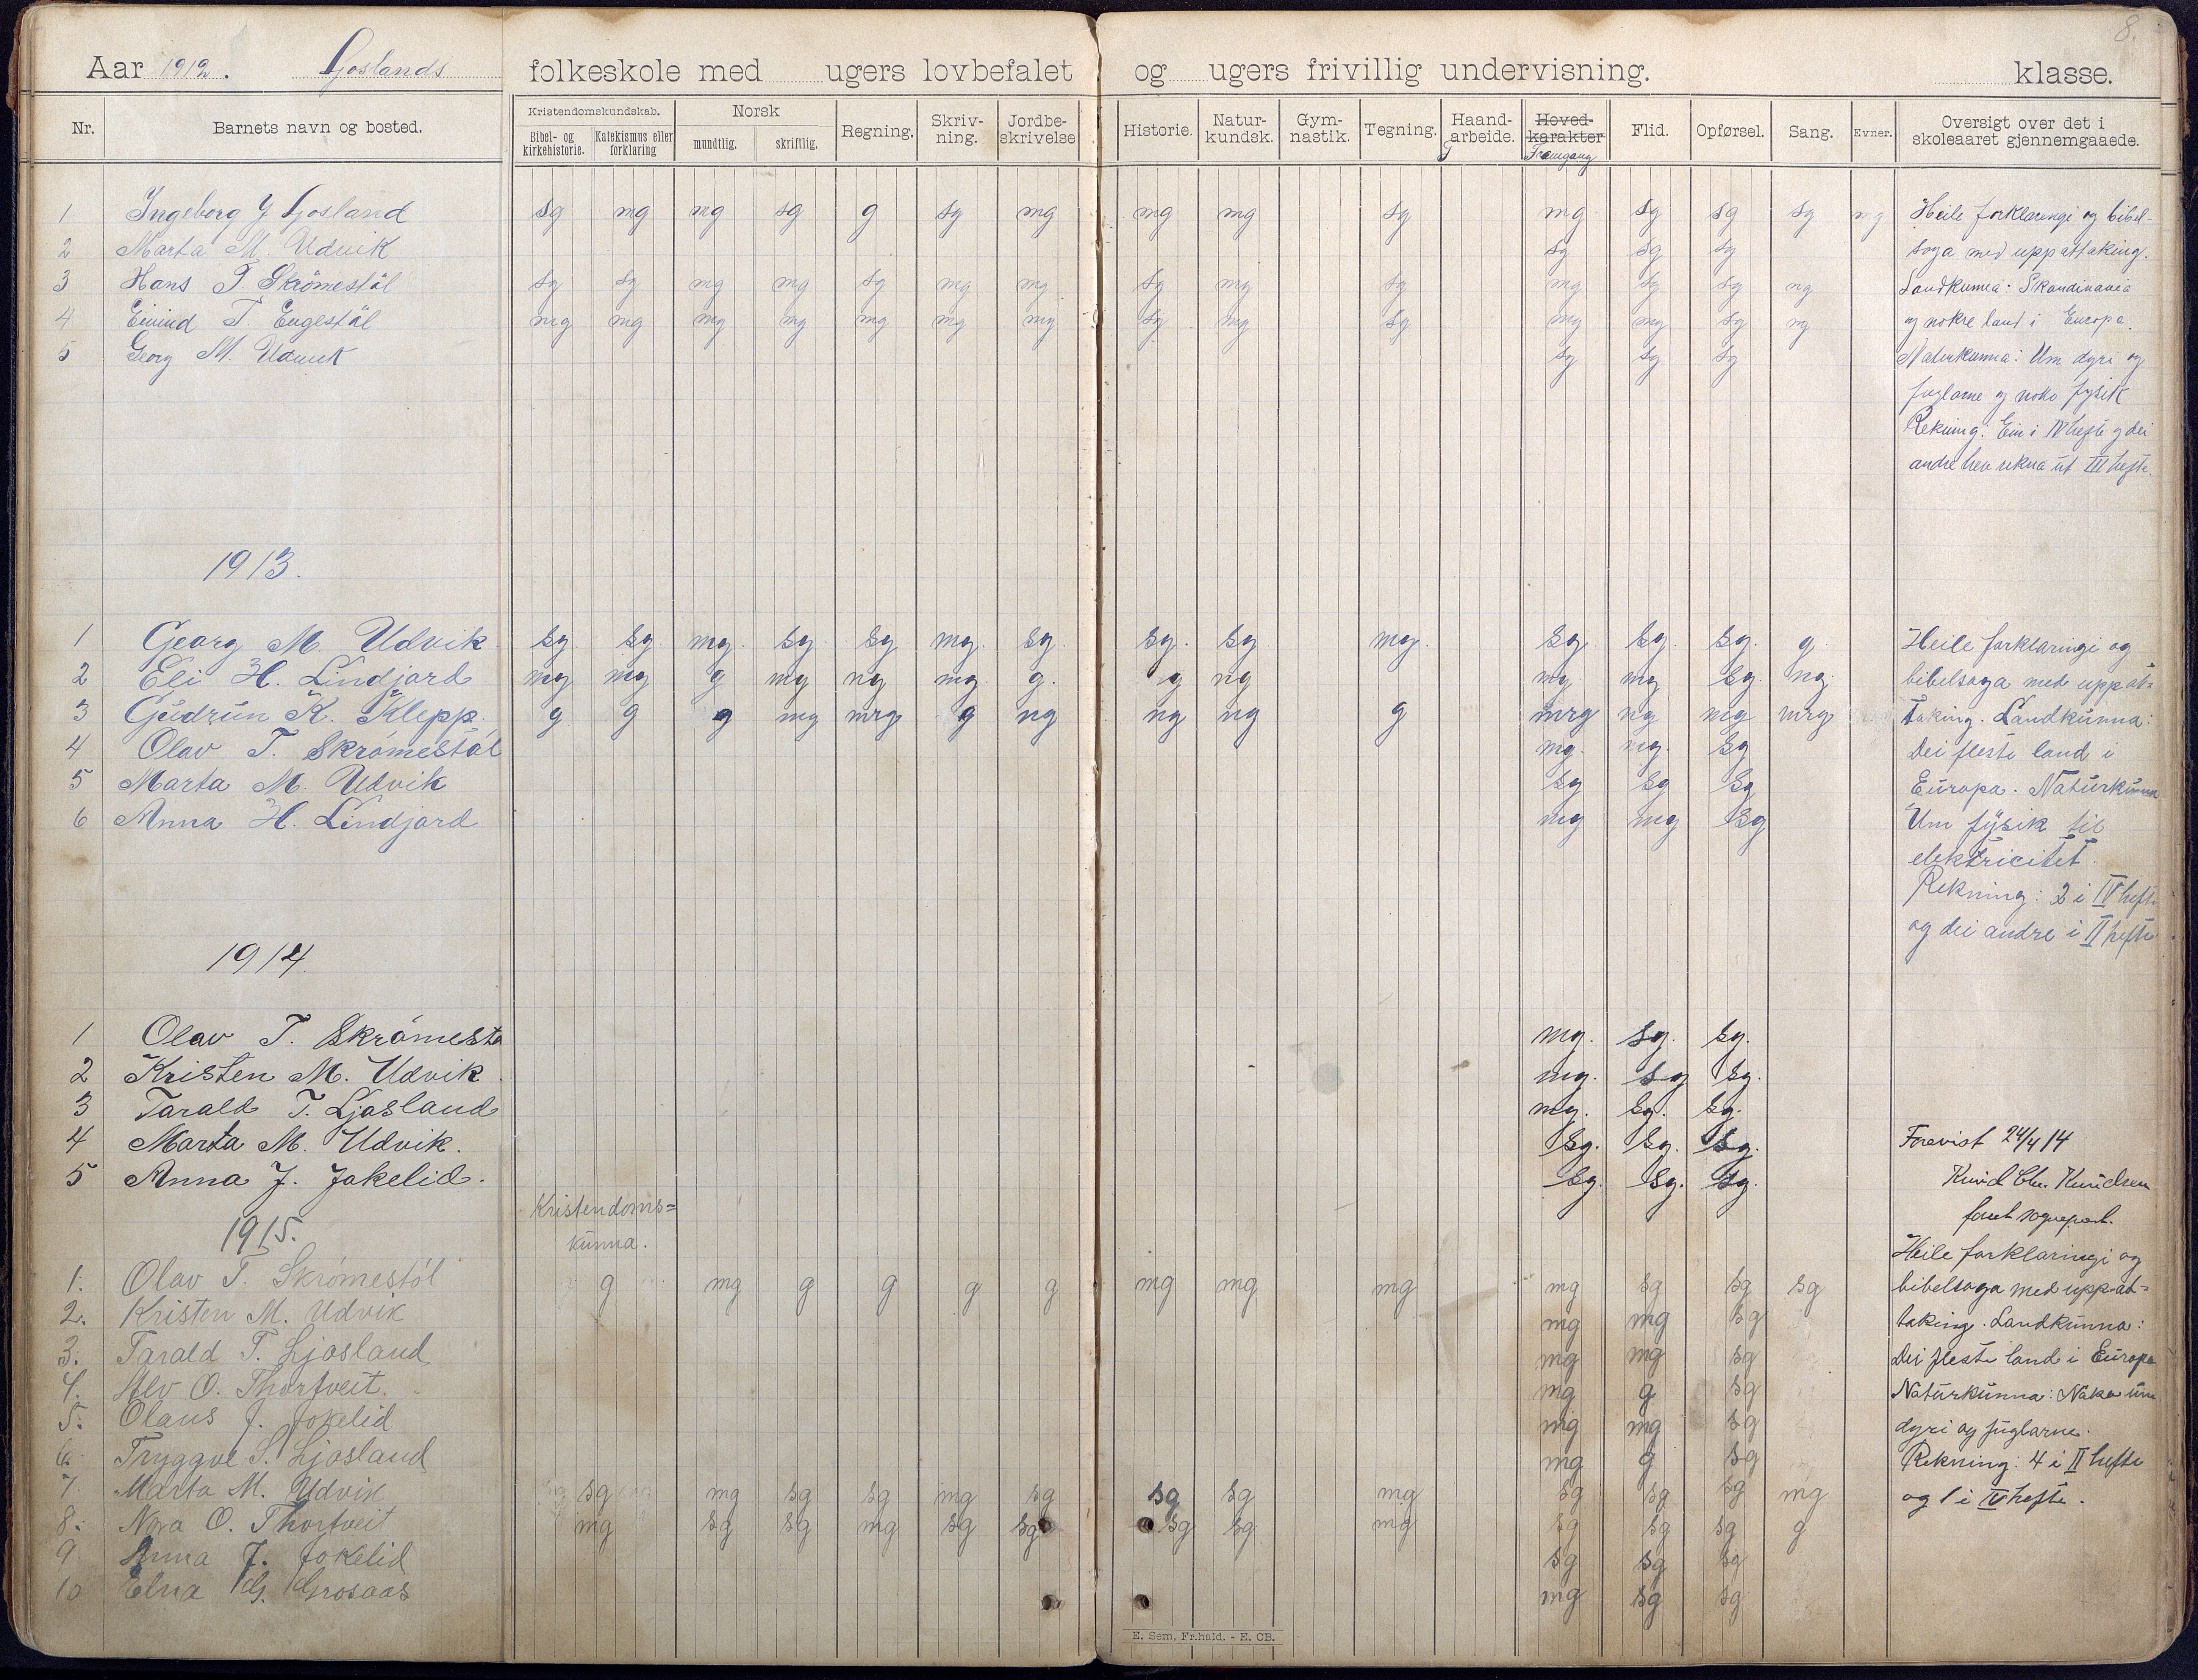 8.
Aar 1912. Ljoslands folkeskole med ugers lovbefalet og ugers frivillig undervisning. klasse.
Nr. Barnets navn og bosted. Kristendomskundskab. Bibel- og kirkehistorie. Katekismus eller forklaring Norsk mundtlig. skriftlig. Regning. Skriv-ning. Jordbe-skrivelse Historie. Natur-kundsk. Gym-nastik. Tegning. Haand-arbeide. Hoved-karakter Framgang Flid. Opførsel. Sang. Evner. Oversigt over det i skoleaaret gjennemgaaede.
1 Ingeborg J Ljosland sg mg mg sg g sg mg mg mg sg mg sg sg sg mg Heile forklaringi og bibel-
2 Marta M. Udvik sg sg sg soga med uppattaking.
3 Hans T. Skrömestöl sg sg mg mg sg mg mg sg mg sg mg sg sg ng Landkunna: Skandinavia
4 Eivind T. Eugestöl mg mg mg mg mg mg mg sg mg sg mg mg sg ng og nokre land i Europa.
5 Georg M. Udvik sg sg sg Naturkunna: Um dyri og
fuglarne og noko fysik
Rekning: Ein i IV hefte og dei
andre hev rekna ut III hefte.
1913.
1 Georg M. Udvik sg sg. mg. sg. sg mg. sg. sg. sg. mg. sg. sg. sg. g. Heile forklaringi og
2 Eli H. Lindjord mg mg g mg ng mg g. g ng mg mg sg. ng. bibelsoga med uppat=
3 Gudrun K. Klepp. g g g mg mrg g ng ng ng g mrg ng mg mrg taking. Landkunna:
4 Olav T. Skrömestöl mg. mg. sg Dei fleste land i
5 Marta M. Udvik sg sg sg Europa. Naturkunna
6 Anna H. Lindjord mg mg sg Um fysik til
elektricitet.
Rekning: 2 i IV hefte
og dei andre i II hefte
1914
1 Olav T. Skrömestö mg. sg. sg.
2 Kristen M. Udvik mg. sg sg.
3 Tarald T. Ljosland mg. sg. sg.
4 Marta M. Udvik. sg. sg. sg. Forevist 24/4 14
5 Anna J. Jokelid. sg. sg. sg. Knud Chr. Knudsen
Kristendoms=
kunna.
1915. Heile forklaringi og
1. Olav T. Skrömestöl g mg g g g g mg mg mg mg sg sg sg bibelsoga med uppat=
2. Kristen M. Udvik mg mg sg taking. Landkunna:
3. Tarald T. Ljosland mg mg sg Dei fleste land i Europa
4. Alv O. Thorfveit. mg g sg Naturkunna: Noko um
5. Olaus J. Jokelid mg mg sg dyri og fuglarne.
6. Tryggve S. Ljosland mg g sg Rekning: 4 i II hefte
7. Marta M. Udvik sg mg sg sg mg sg sg sg mg sg sg sg mg og 1 i IV hefte.
8. Nora O. Thorfveit mg sg sg mg sg sg sg sg mg sg sg sg g
9 Anna J. Jokelid sg sg sg
10 Elna G. Grosaas mg sg sg
E. Sem, Fr.hald. - E. CB.